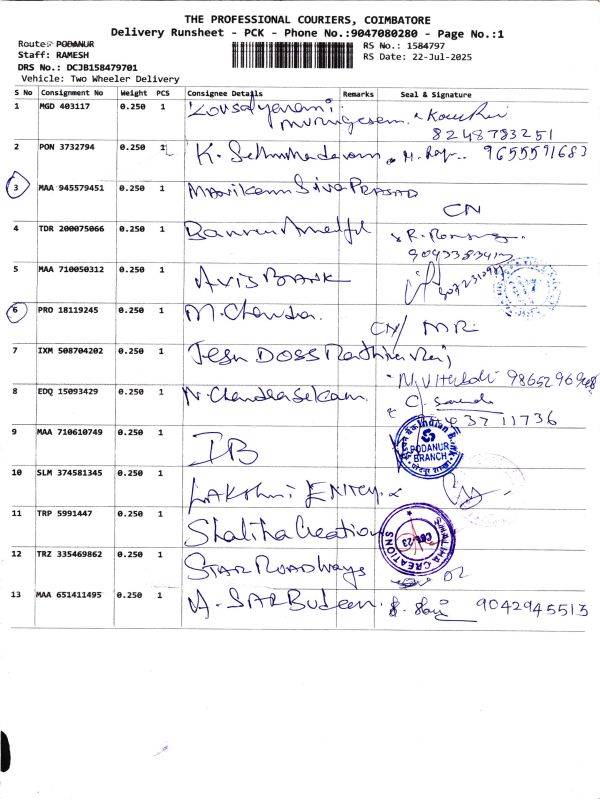 THE PROFESSIONAL COURIERS, COIMBATORE
Delivery Runsheet - PCK - Phone No.:9047080280 - Page No.:1
Route: PODANUR
RS No.: 1584797
Staff: RAMESH
RS Date: 22-Jul-2025
DRS No.: DCJB158479701
Vehicle: Two Wheeler Delivery
S No Consignment No Weight PCS Consignee Details Remarks Seal & Signature
1 MGD 403117 0.250 1
8248783251
2 PON 3732794 0.250 1 K. 9655591683
3 MAA 945579451 0.250 1 Manikam Siva PRASAD
CN
4 TDR 200075066 0.250 1
5 MAA 710050312 0.250 1 AXIS BANK
6 PRO 18119245 0.250 1 M. Chandra.
CN/ MR
7 IXM 508704202 0.250 1 Jesu DOSS
8 EDQ 15093429 0.250 1 N. Chandrasekaran
9 MAA 710610749 0.250 1 IB
PODANUR
BRANCH
10 SLM 374581345 0.250 1 LAKShmi
11 TRP 5991447 0.250 1 Shalima Creation
SHALIMA CREATIONS
CBE-23
12 TRZ 335469862 0.250 1 STAR ROADWays
13 MAA 651411495 0.250 1 A. SARBudeen. 9042945513